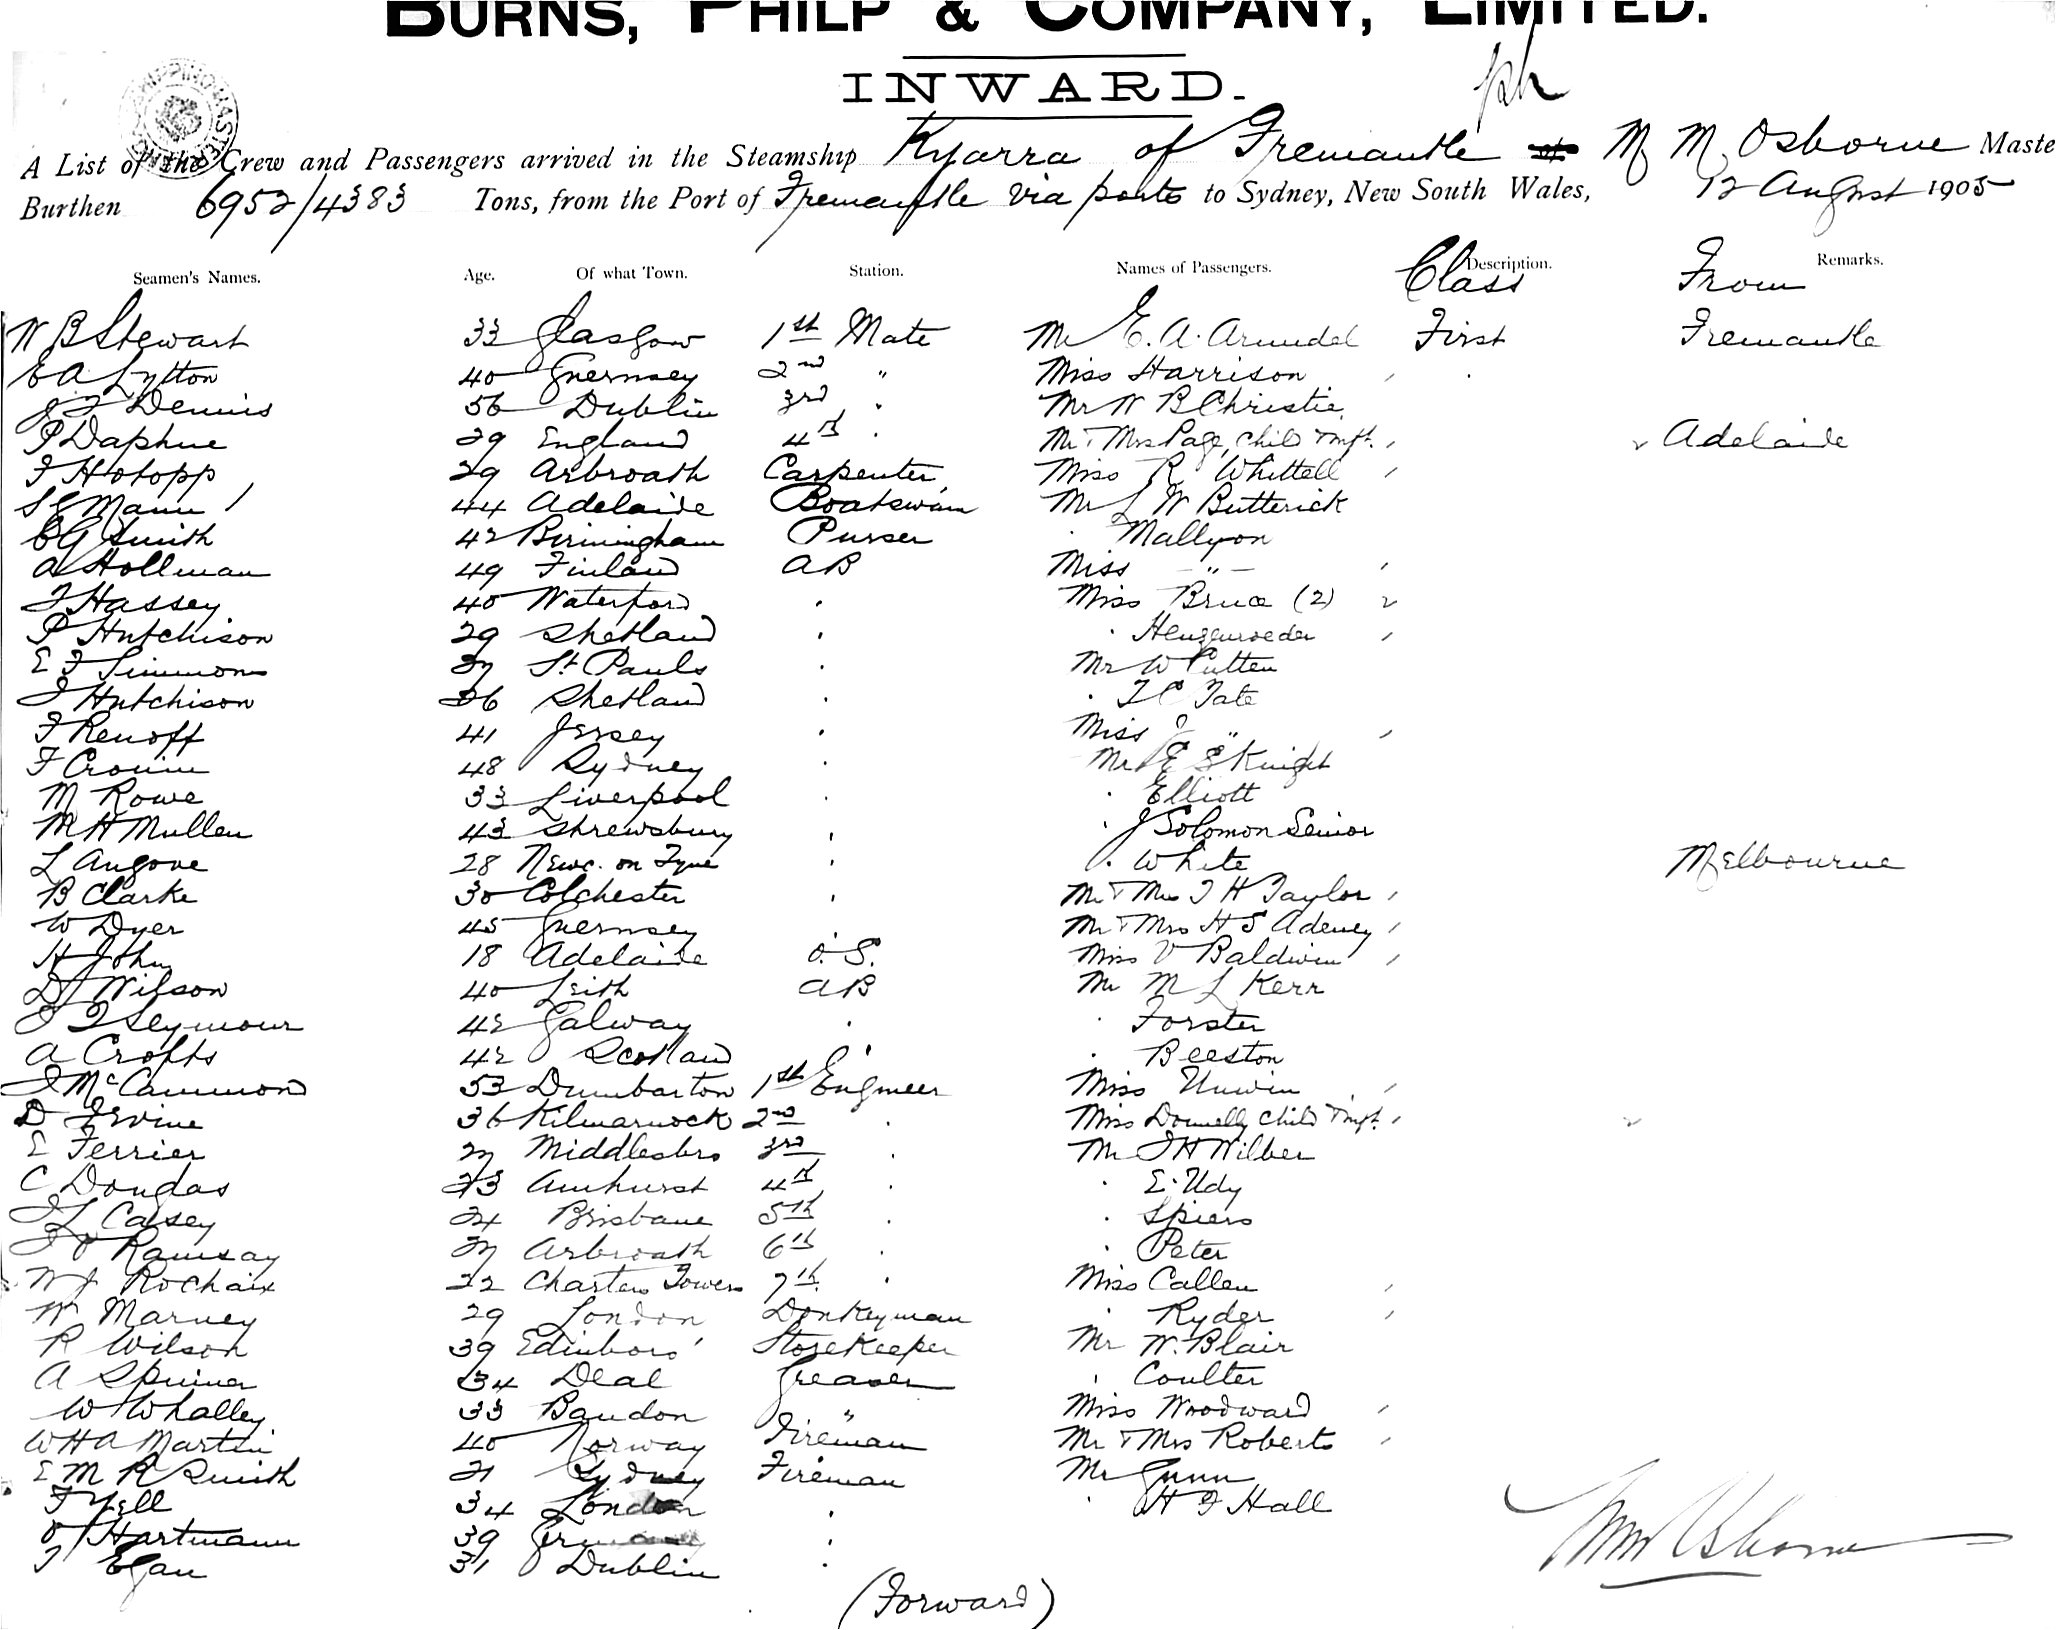 BURNS, PHILP & COMPANY, LIMITED.
INWARD.
A List of the Crew and Passengers arrived in the Steamship Kyarra of Fremantle M M Osborne Maste
Burthen 6952/4383 Tons, from the Port of Fremantle via ports to Sydney, New South Wales, 12 August 1905
Seamen's Names. Age. Of what Town. Station. Names of Passengers. Class Description. From Remarks.
W B Stewart 33 Glasgow 1st Mate Mr E. A. Arundel First Fremantle
E A Lytton 40 Guernsey 2nd " Miss Harrison
J F Dennis 56 Dublin 3rd Mr W B Christie
P Daphne 29 England 4th Mr & Mrs Page, child & inft. Adelaide
F Hotopp 29 Arbroath Carpenter Miss R Whittell
S G Mann 44 Adelaide Boatswain Mr L W Butterick
C G Smith 42 Birmingham Purser Mallyon
A Hollman 49 Finland AB Miss "
F Hassey 40 Waterford Miss Bruce (2)
P Hutchison 29 Shetland
E F Simmons 27 St. Pauls Mr W Putten
J Hutchison 26 Shetland T C Tate
F Renoff 41 Jersey Miss "
F Cronin 48 Sydney Mr E S Knight
M Rowe 33 Liverpool Elliott
M H Mullen 43 Shrewsbury J Solomon Senior
L Angove 28 Newc. on Tyne White Melbourne
B Clarke 30 Colchester Mr & Mrs T H Taylor
W Dyer 45 Guernsey Mr & Mrs H S Adeney
H John 18 Adelaide O.S. Miss V Baldwin
D J Wilson 40 Leith AB Mr M L Kerr
J T Seymour 42 Galway Forster
A Crofts 42 Scotland Beeston
J McCammond 53 Dumbarton 1st Engineer Miss Unwin
D Irvine 36 Kilmarnock 2nd Miss Donnelly child & inft.
E Ferrier 27 Middlesbro 3rd Mr J H Wilber
C Douglas 23 Amhurst 4th E. Udy
J L Casey 24 Brisbane 5th Spiers
J O Ramsay 27 Arbroath 6th Peter
W J Rochaix 22 Charters Towers 7th Miss Callen
W Marney 29 London Donkeyman Ryder
R Wilson 39 Edinboro' Storekeeper Mr W. Blair
A Spinner 34 Deal Greaser Coulter
W Whalley 33 Bandon " Miss Woodward
W H A Martin 40 Norway Fireman Mr & Mrs Roberts
E M R Smith 21 Sydney Fireman Mr Gunn
F Yell 34 London H F Hall
O Hartmann 39 Germany
T Egan 31 Dublin
(Forward)